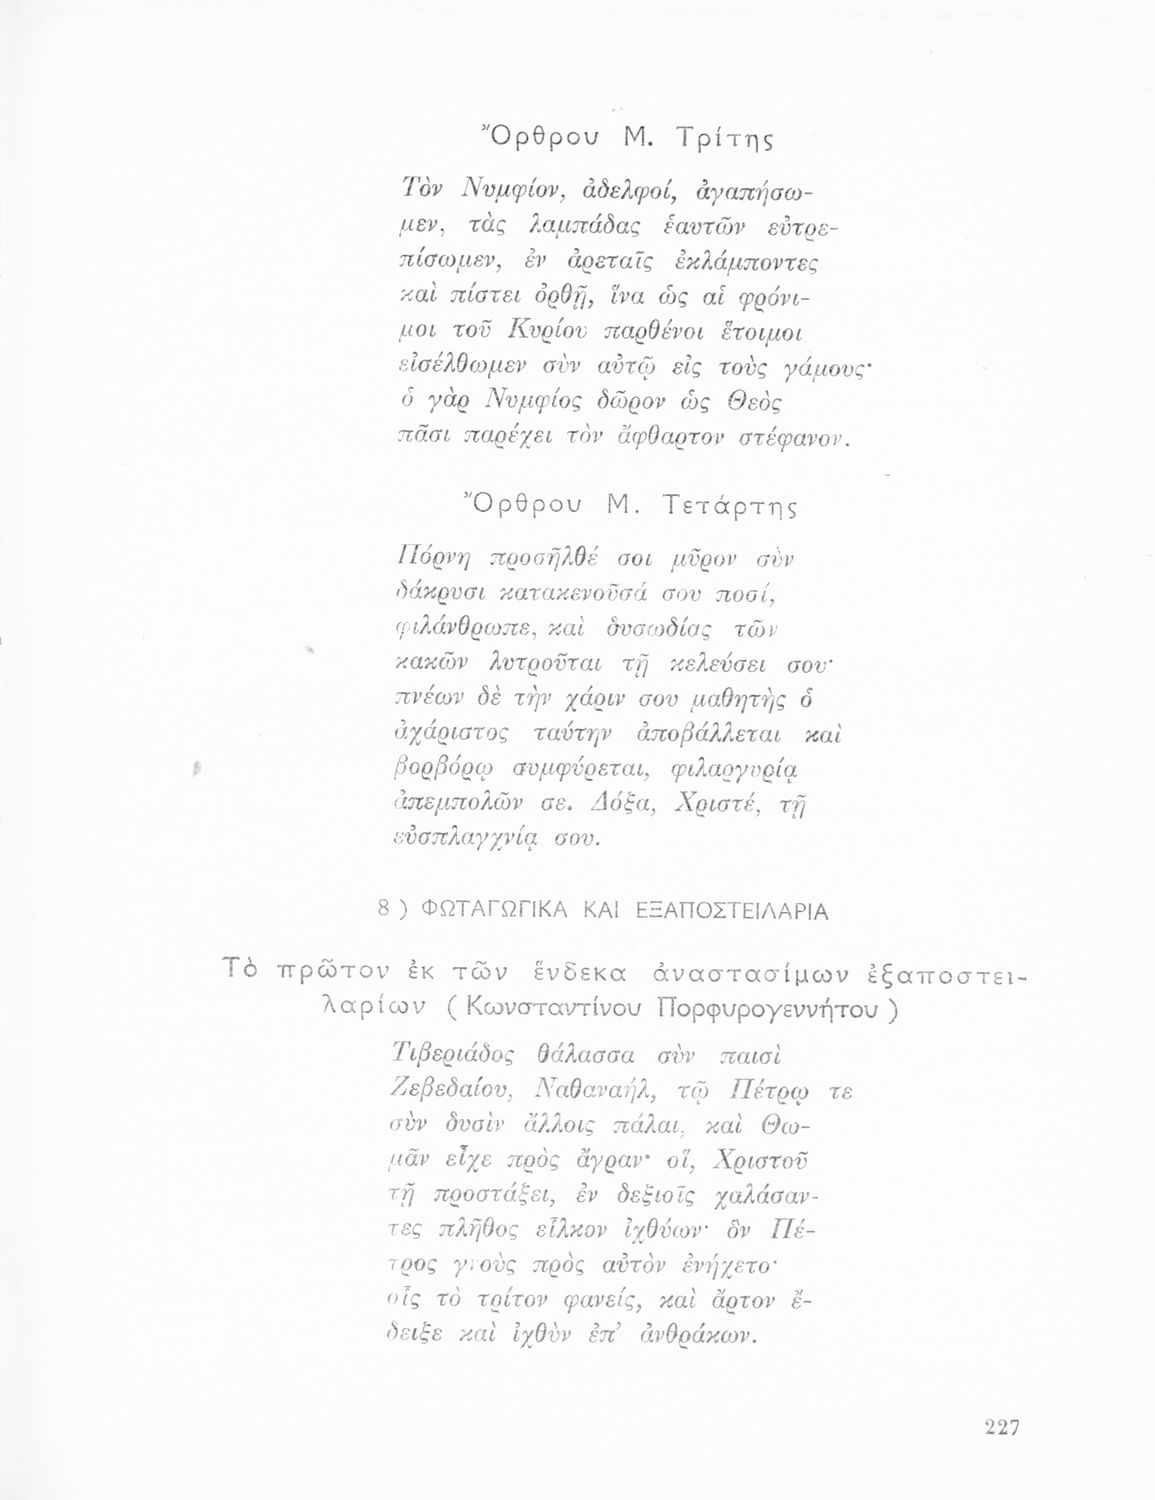 Ὄρθρου Μ. Τρίτης
Τὸν Νυμφίον, ἀδελφοί, ἀγαπήσω-
μεν, τὰς λαμπάδας ἑαυτῶν εὐτρε-
πίσωμεν, ἐν ἀρεταῖς ἐκλάμποντες
καὶ πίστει ὀρθῇ, ἵνα ὡς αἱ φρόνι-
μοι τοῦ Κυρίου παρθένοι ἕτοιμοι
εἰσέλθωμεν σὺν αὐτῷ εἰς τοὺς γάμους·
ὁ γὰρ Νυμφίος δῶρον ὡς Θεὸς
πᾶσι παρέχει τὸν ἄφθαρτον στέφανον.
Ὄρθρου Μ. Τετάρτης
Πόρνη προσῆλθέ σοι μῦρον σὺν
δάκρυσι κατακενοῦσά σου ποσί,
φιλάνθρωπε, καὶ δυσωδίας τῶν
κακῶν λυτροῦται τῇ κελεύσει σου·
πνέων δὲ τὴν χάριν σου μαθητὴς ὁ
ἀχάριστος ταύτην ἀποβάλλεται καὶ
βορβόρῳ συμφύρεται, φιλαργυρίᾳ
ἀπεμπολῶν σε. Δόξα, Χριστέ, τῇ
εὐσπλαγχνίᾳ σου.
8) ΦΩΤΑΓΩΓΙΚΑ ΚΑΙ ΕΞΑΠΟΣΤΕΙΛΑΡΙΑ
Τὸ πρῶτον ἐκ τῶν ἕνδεκα ἀναστασίμων ἐξαποστει-
λαρίων (Κωνσταντίνου Πορφυρογεννήτου)
Τιβεριάδος θάλασσα σὺν παισὶ
Ζεβεδαίου, Ναθαναήλ, τῷ Πέτρῳ τε
σὺν δυσὶν ἄλλοις πάλαι, καὶ Θω-
μᾶν εἶχε πρὸς ἄγραν· οἵ, Χριστοῦ
τῇ προστάξει, ἐν δεξιοῖς χαλάσαν-
τες πλῆθος εἷλκον ἰχθύων· ὃν Πέ-
τρος γνοὺς πρὸς αὐτὸν ἐνήχετο·
οἷς τὸ τρίτον φανείς, καὶ ἄρτον ἔ-
δειξε καὶ ἰχθὺν ἐπ' ἀνθράκων.
227